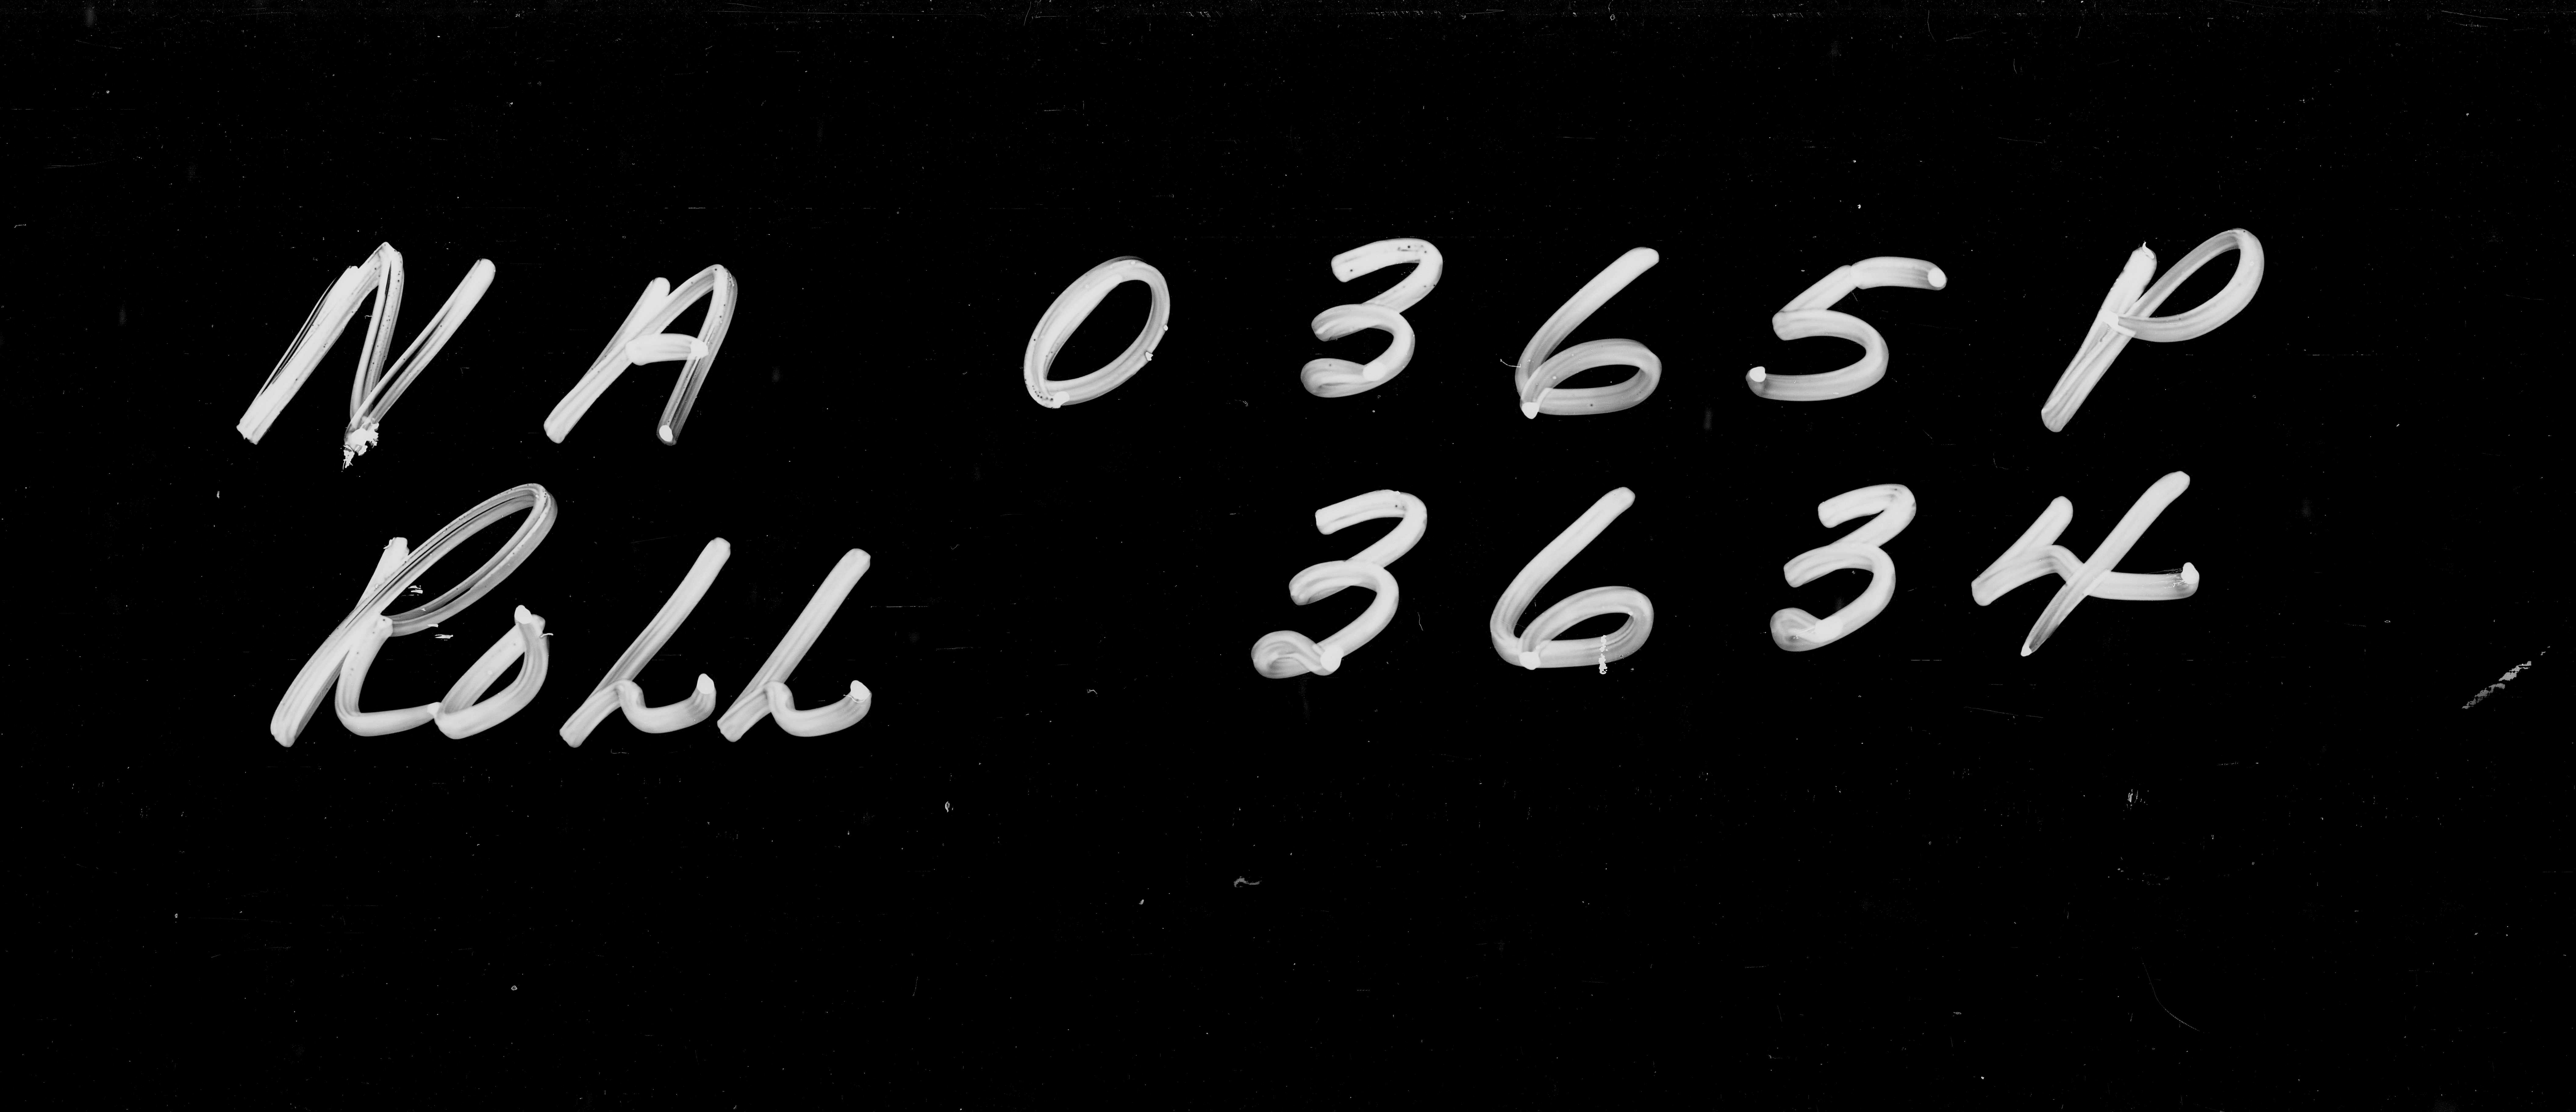 NA 0365P
Roll 3634